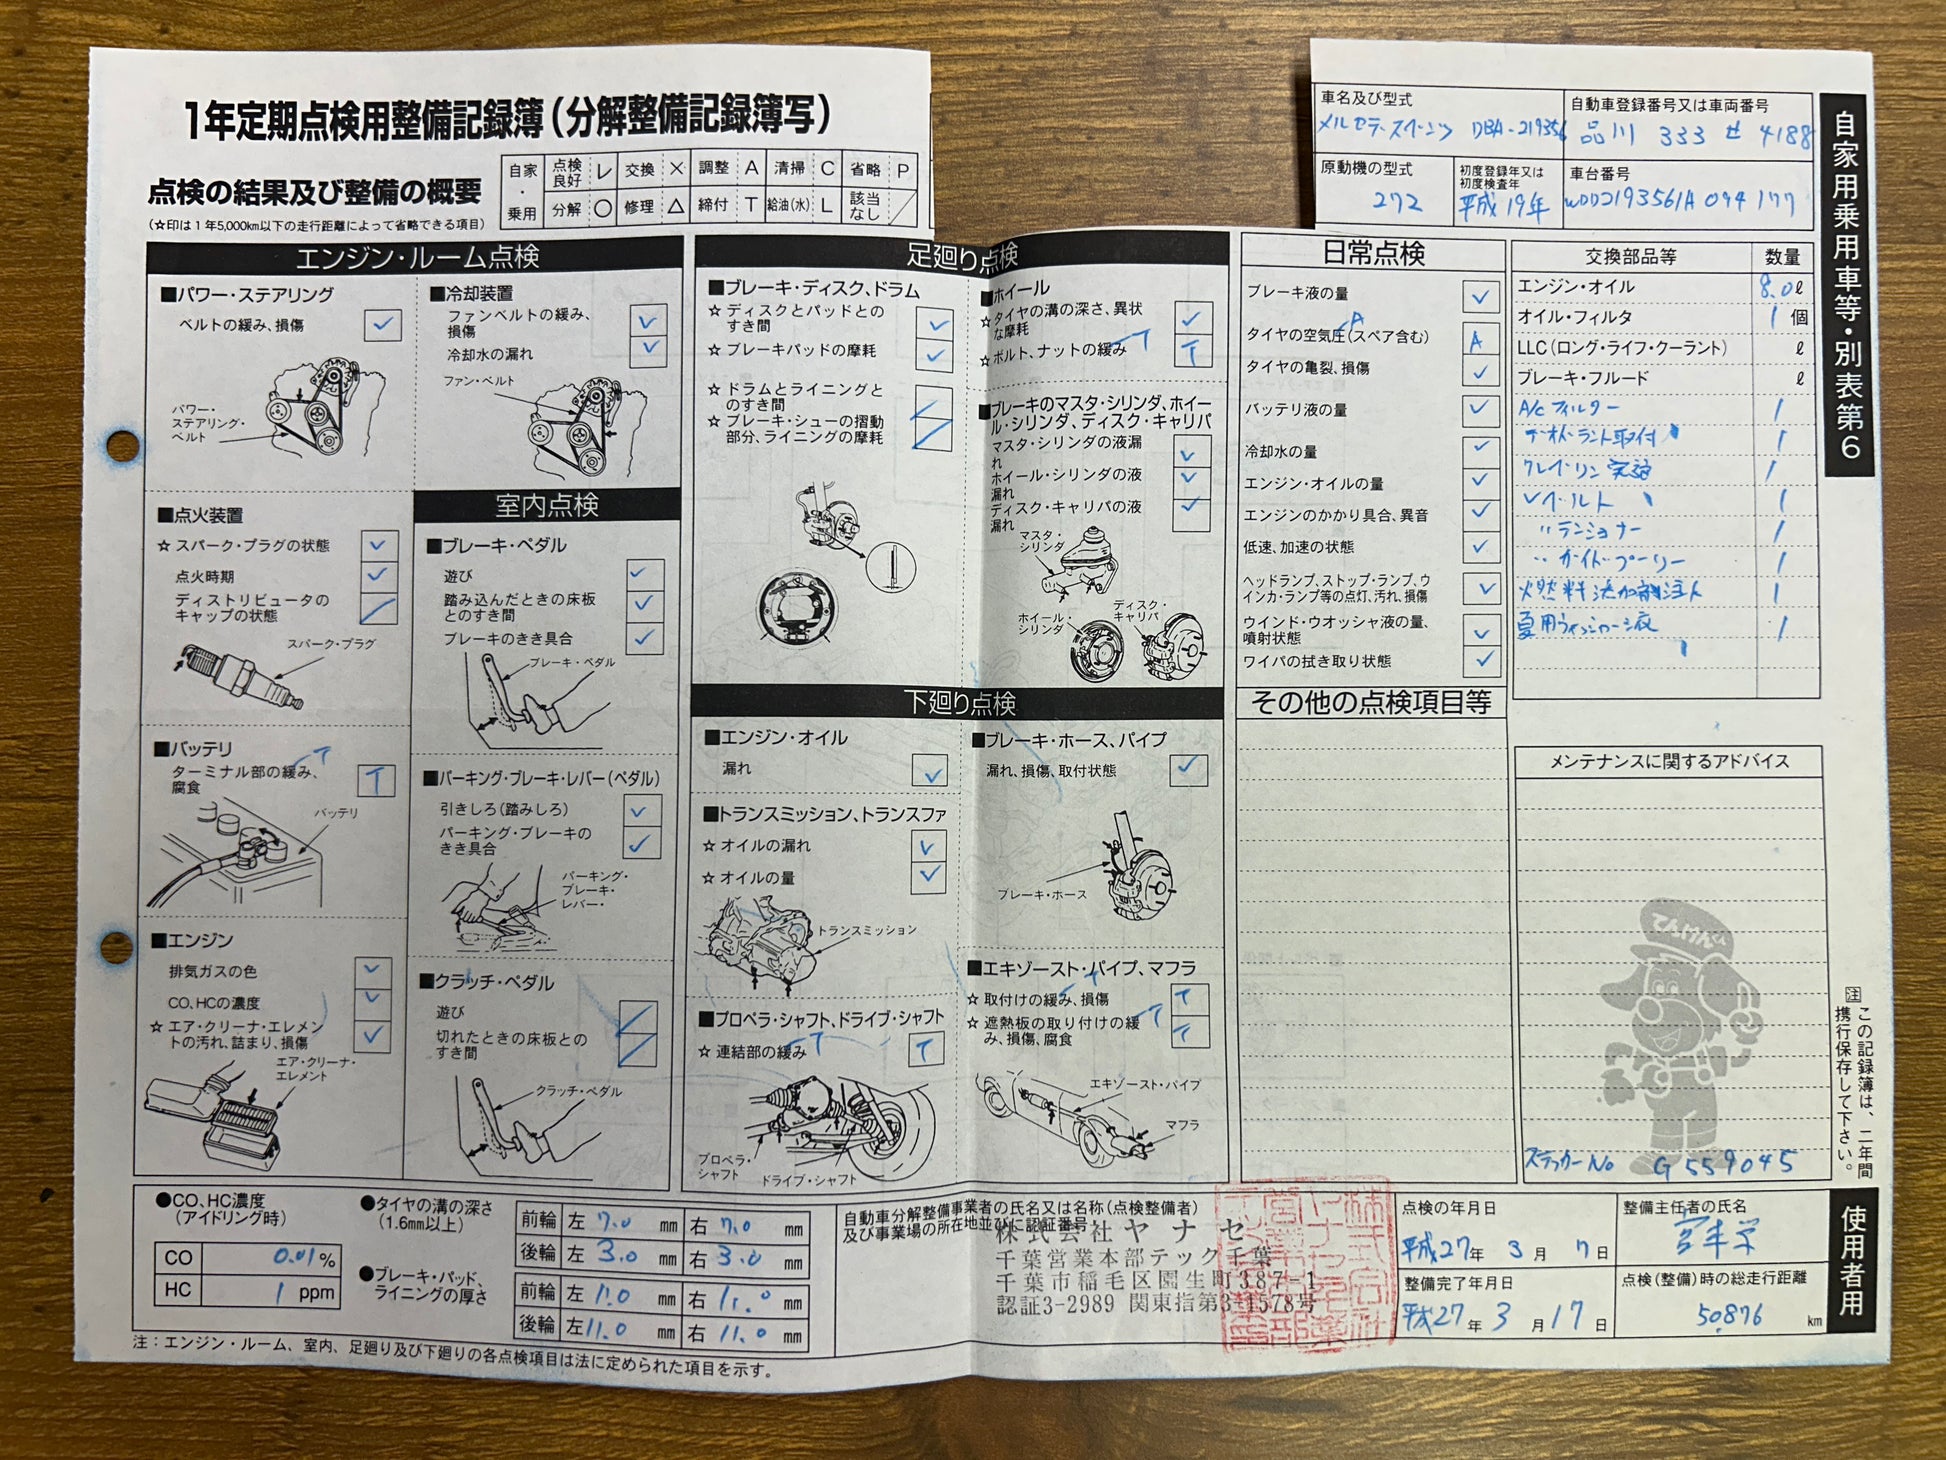 1年定期点検用整備記録簿(分解整備記録簿写)
点検の結果及び整備の概要
(☆印は1年5,000km以下の走行距離によって省略できる項目)
自家・乗用 点検良好 レ 交換 × 調整 A 清掃 C 省略 P
分解 ○ 修理 △ 締付 T 給油(水) L 該当なし ／
車名及び型式
メルセデス・ベンツ DBA-219356
自動車登録番号又は車両番号
品川 333 せ 4188
原動機の型式
272
初度登録年又は初度検査年
平成19年
車台番号
WDD2193561A094177
自家用乗用車等・別表第6
エンジン・ルーム点検
■パワー・ステアリング
ベルトの緩み、損傷 レ
パワー・ステアリング・ベルト
■冷却装置
ファンベルトの緩み、損傷 レ
冷却水の漏れ レ
ファン・ベルト
■点火装置
☆スパーク・プラグの状態 レ
点火時期 レ
ディストリビュータのキャップの状態 ／
スパーク・プラグ
■バッテリ
ターミナル部の緩み、腐食 T
T
バッテリ
■エンジン
排気ガスの色 レ
CO、HCの濃度 レ
☆エア・クリーナ・エレメントの汚れ、詰まり、損傷 レ
エア・クリーナ・エレメント
室内点検
■ブレーキ・ペダル
遊び レ
踏み込んだときの床板とのすき間 レ
ブレーキのきき具合 レ
ブレーキ・ペダル
■パーキング・ブレーキ・レバー(ペダル)
引きしろ(踏みしろ) レ
パーキング・ブレーキのきき具合 レ
パーキング・ブレーキ・レバー・
■クラッチ・ペダル
遊び ／
切れたときの床板とのすき間 ／
クラッチ・ペダル
足廻り点検
■ブレーキ・ディスク、ドラム
☆ディスクとパッドとのすき間 レ
☆ブレーキパッドの摩耗 レ
☆ドラムとライニングとのすき間 ／
☆ブレーキ・シューの摺動部分、ライニングの摩耗 ／
■ホイール
☆タイヤの溝の深さ、異状な摩耗 レ
☆ボルト、ナットの緩み T
T
■ブレーキのマスタ・シリンダ、ホイール・シリンダ、ディスク・キャリパ
マスタ・シリンダの液漏れ レ
ホイール・シリンダの液漏れ レ
ディスク・キャリパの液漏れ レ
マスタ・シリンダ
ホイール・シリンダ
ディスク・キャリパ
下廻り点検
■エンジン・オイル
漏れ レ
■トランスミッション、トランスファ
☆オイルの漏れ レ
☆オイルの量 レ
トランスミッション
■プロペラ・シャフト、ドライブ・シャフト
☆連結部の緩み T
T
プロペラ・シャフト
ドライブ・シャフト
■ブレーキ・ホース、パイプ
漏れ、損傷、取付状態 レ
ブレーキ・ホース
■エキゾースト・パイプ、マフラ
☆取付けの緩み、損傷 T
T
☆遮熱板の取り付けの緩み、損傷、腐食 T
T
エキゾースト・パイプ
マフラ
日常点検
ブレーキ液の量 レ
タイヤの空気圧(スペア含む) A
A
タイヤの亀裂、損傷 レ
バッテリ液の量 レ
冷却水の量 レ
エンジン・オイルの量 レ
エンジンのかかり具合、異音 レ
低速、加速の状態 レ
ヘッドランプ、ストップ・ランプ、ウインカ・ランプ等の点灯、汚れ、損傷 レ
ウインド・ウオッシャ液の量、噴射状態 レ
ワイパの拭き取り状態 レ
その他の点検項目等
交換部品等 数量
エンジン・オイル 8.0ℓ
オイル・フィルタ 1個
LLC(ロング・ライフ・クーラント) ℓ
ブレーキ・フルード ℓ
A/Cフィルター 1
デオドラント取付 1
クレベリン実施 1
Vベルト 1
〃テンショナー 1
〃ガイドプーリー 1
燃料添加剤注入 1
夏用ウォッシャー液 1
メンテナンスに関するアドバイス
てんけんくん
ステッカーNo G559045
注 この記録簿は、二年間携行保存して下さい。
●CO、HC濃度(アイドリング時)
CO 0.01%
HC 1ppm
●タイヤの溝の深さ(1.6mm以上)
前輪 左 7.0mm 右 7.0mm
後輪 左 3.0mm 右 3.0mm
●ブレーキ・パッド、ライニングの厚さ
前輪 左 11.0mm 右 11.0mm
後輪 左 11.0mm 右 11.0mm
自動車分解整備事業者の氏名又は名称(点検整備者)及び事業場の所在地並びに認証番号
株式会社ヤナセ
千葉営業本部テック千葉
千葉市稲毛区園生町387-1
認証3-2989 関東指第3-1578号
点検の年月日
平成27年3月7日
整備完了年月日
平成27年3月17日
整備主任者の氏名
点検(整備)時の総走行距離
50,876km
使用者用
注:エンジン・ルーム、室内、足廻り及び下廻りの各点検項目は法に定められた項目を示す。